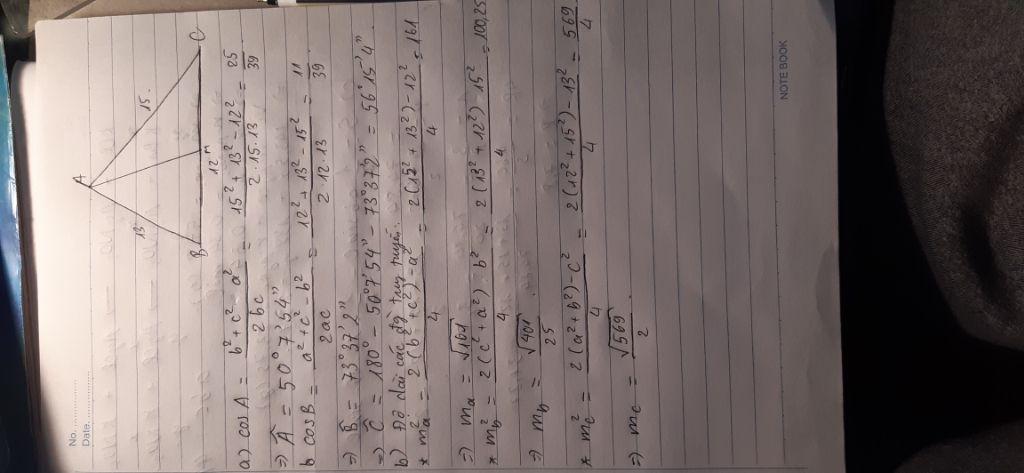 No.
Date.
A
13
15.
B
12
M
C
a) cos A = b² + c² - a² / 2bc = 15² + 13² - 12² / 2.15.13 = 25/39
=> Â = 50°7'54"
b cos B = a² + c² - b² / 2ac = 12² + 13² - 15² / 2.12.13 = 11/39
=> B̂ = 73°37'2"
=> Ĉ = 180° - 50°7'54" - 73°37'2" = 56°15'4"
b) Độ dài các đg trug tuyến.
* mₐ² = 2(b² + c²) - a² / 4 = 2(15² + 13²) - 12² / 4 = 161
=> mₐ = √161
* m_b² = 2(c² + a²) - b² / 4 = 2(13² + 12²) - 15² / 4 = 100,25
=> m_b = √401 / 25
* m_c² = 2(a² + b²) - c² / 4 = 2(12² + 15²) - 13² / 4 = 569/4
=> m_c = √569 / 2
NOTE BOOK